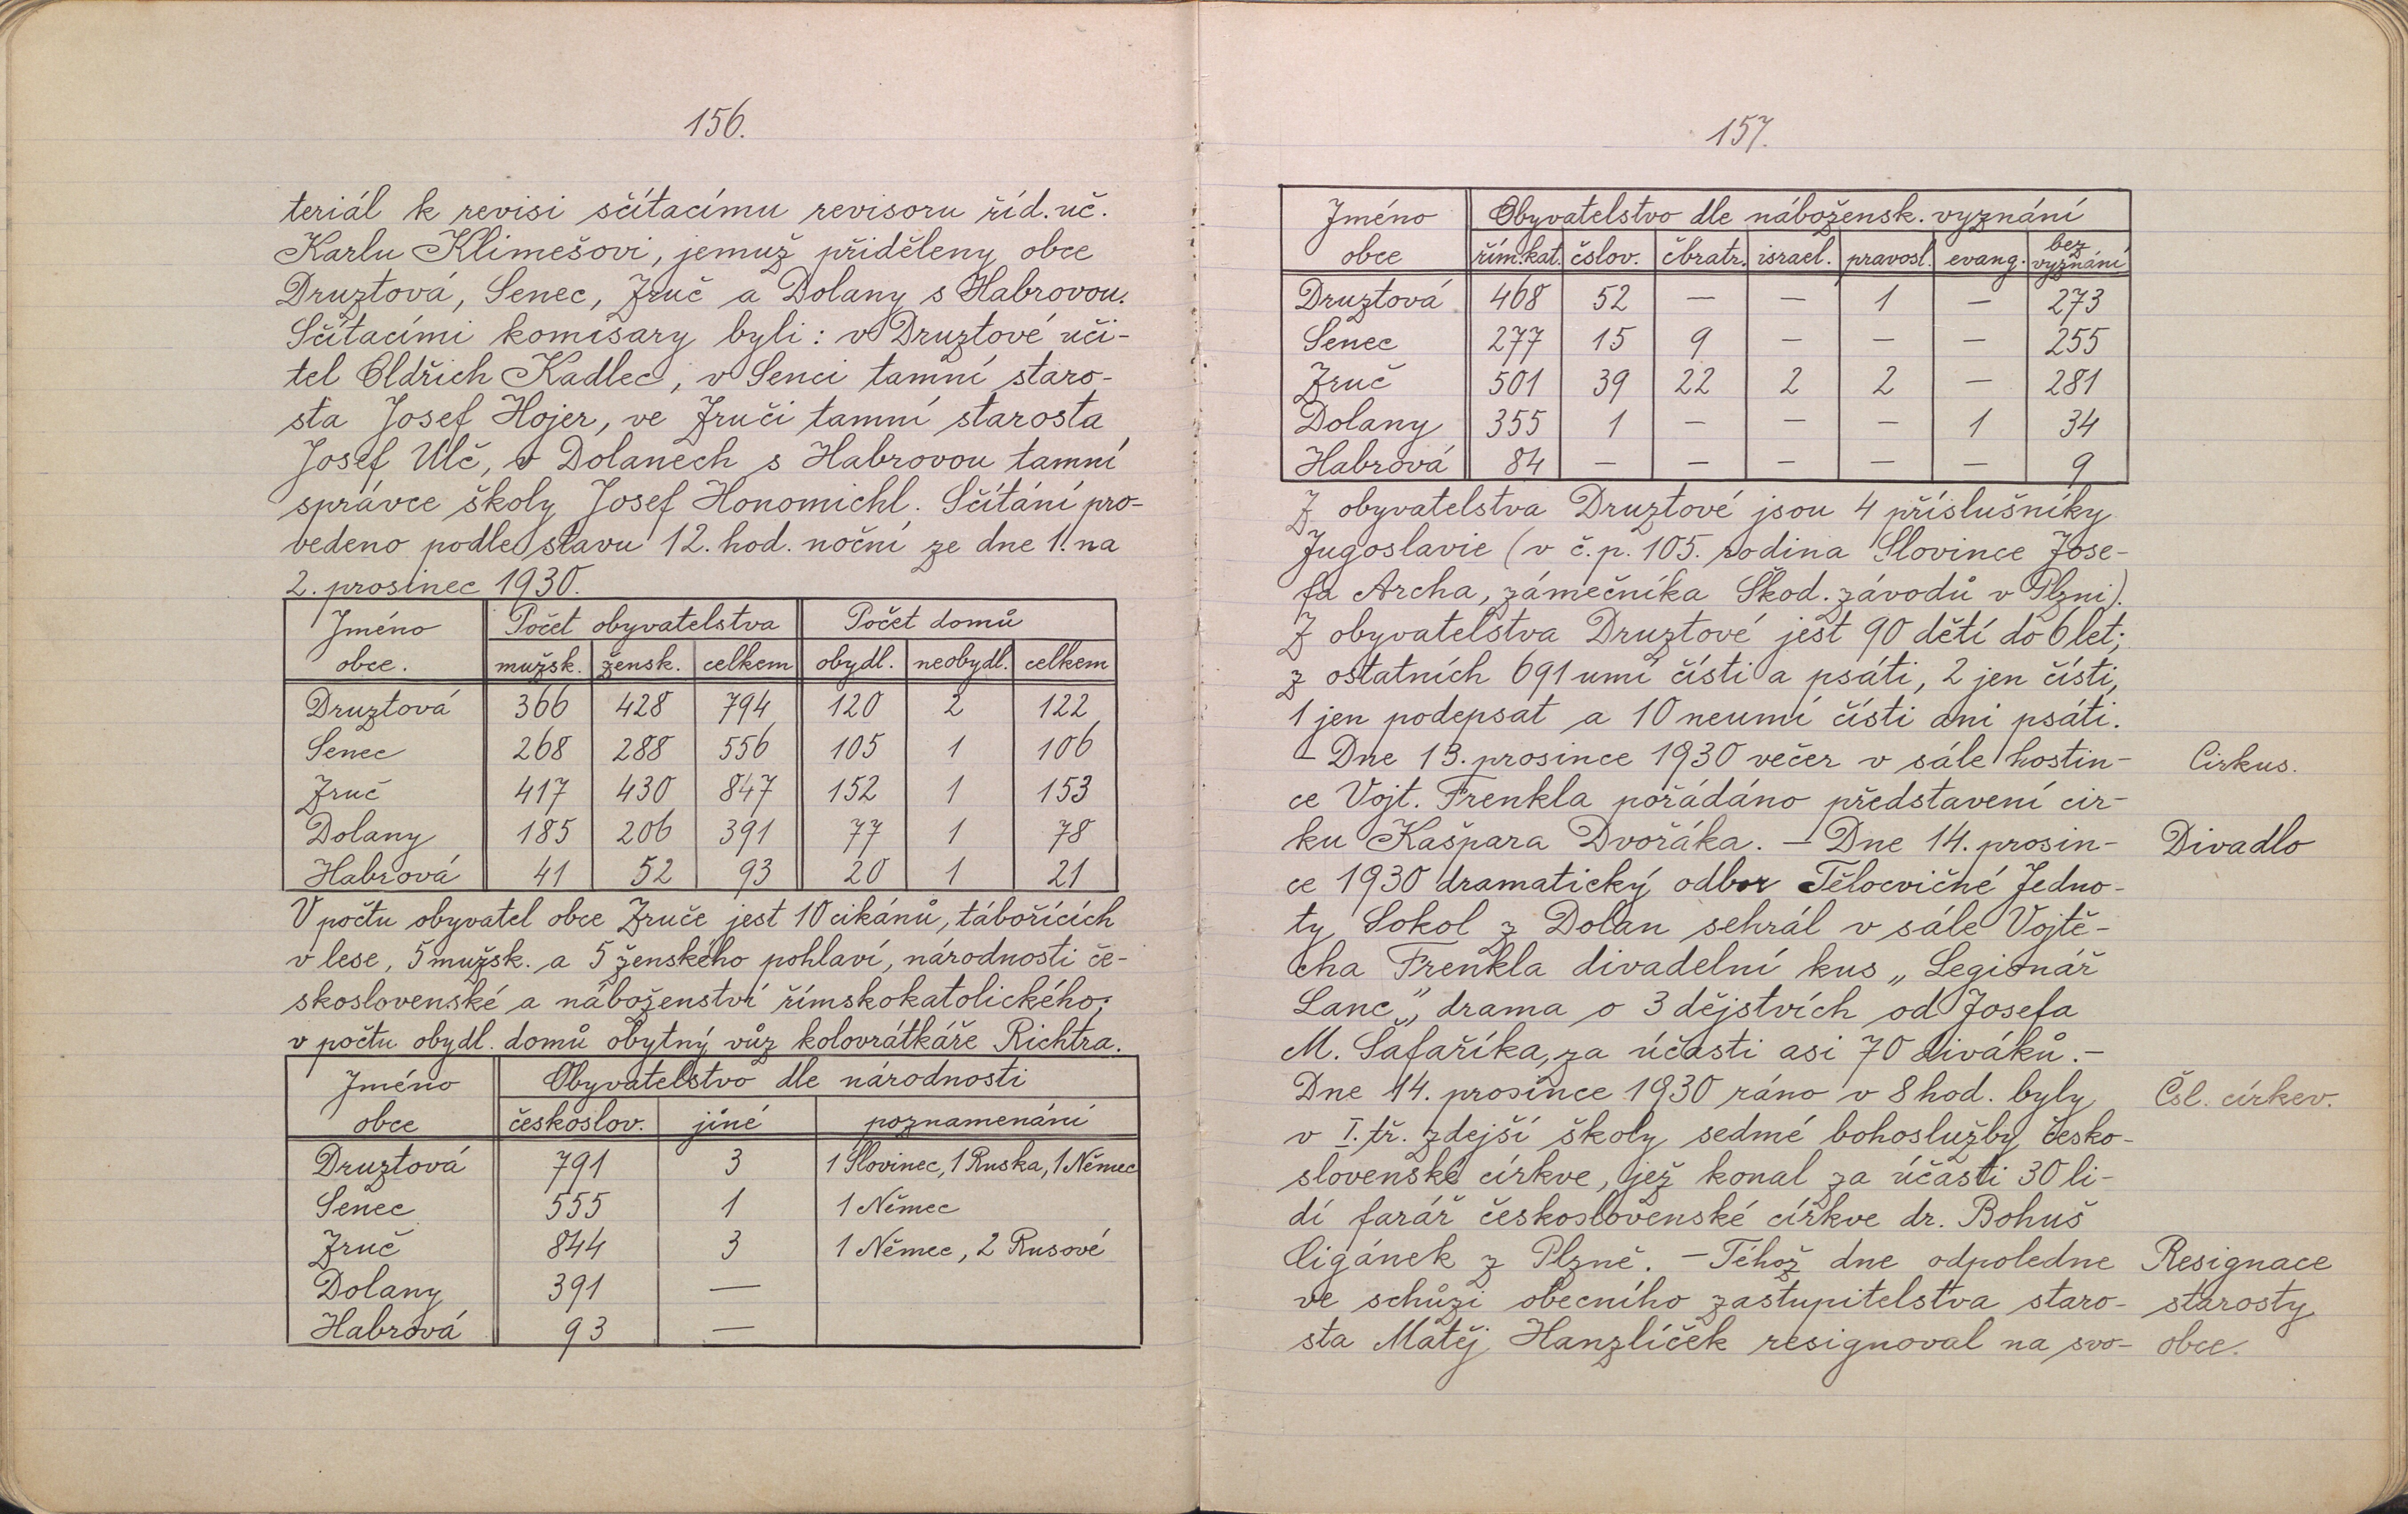 156.
teriál k revisi sčítacímu revisoru říd. uč.
Karlu Klimešovi, jemuž přiděleny obce
Druztová, Senec, Zruč a Dolany s Habrovou.
Sčítacími komisary byli: v Druztové uči-
tel Oldřich Kadlec, v Senci tamní staro-
sta Josef Hojer, ve Zruči tamní starosta
Josef Ulč, v Dolanech s Habrovou tamní
správce školy Josef Honomichl. Sčítání pro-
vedeno podle stavu 12. hod. noční ze dne 1. na
2. prosinec 1930.
Jméno Počet obyvatelstva Počet domů
obce. mužsk. žensk. celkem obydl. neobydl. celkem
Druztová 366 428 794 120 2 122
Senec 268 288 556 105 1 106
Zruč 417 430 847 152 1 153
Dolany 185 206 391 77 1 78
Habrová 41 52 93 20 1 21
V počtu obyvatel obce Zruče jest 10 cikánů, tábořících
v lese, 5 mužsk. a 5 ženského pohlaví, národnosti če-
skoslovenské a náboženství římskokatolického;
v počtu obydl. domů obytný vůz kolovrátkáře Richtra.
Jméno Obyvatelstvo dle národnosti
obce českoslov. jiné poznamenání
Druztová 791 3 1 Slovinec, 1 Ruska, 1 Němec
Senec 555 1 1 Němec
Zruč 844 3 1 Němec, 2 Rusové
Dolany 391 —
Habrová 93 —
157.
Jméno Obyvatelstvo dle nábožensk. vyznání
obce řím.kat. čslov. čbratr. israel. pravosl. evang. bez vyznání
Druztová 468 52 — — 1 — 273
Senec 277 15 9 — — — 255
Zruč 501 39 22 2 2 — 281
Dolany 355 1 — — — 1 34
Habrová 84 — — — — — 9
Z obyvatelstva Druztové jsou 4 příslušníky
Jugoslavie (v č.p. 105. rodina Slovince Jose-
fa Archa, zámečníka Škod. závodů v Plzni).
Z obyvatelstva Druztové jest 90 dětí do 6 let;
z ostatních 691 umí čísti a psáti, 2 jen čísti,
1 jen podepsat a 10 neumí čísti ani psáti.
– Dne 13. prosince 1930 večer v sále hostin- Cirkus.
ce Vojt. Frenkla pořádáno představení cir-
ku Kašpara Dvořáka. – Dne 14. prosin- Divadlo
ce 1930 dramatický odbor Tělocvičné Jedno-
ty Sokol z Dolan sehrál v sále Vojtě-
cha Frenkla divadelní kus „Legionář
Lanc", drama o 3 dějstvích od Josefa
M. Šafaříka, za účasti asi 70 diváků. –
Dne 14. prosince 1930 ráno v 8 hod. byly Čsl. církev.
v I. tř. zdejší školy sedmé bohoslužby česko-
slovenské církve, jež konal za účasti 30 li-
dí farář československé církve dr. Bohuš
Cigánek z Plzně. – Téhož dne odpoledne Resignace
ve schůzi obecního zastupitelstva staro- starosty
sta Matěj Hanzlíček resignoval na svo- obce.